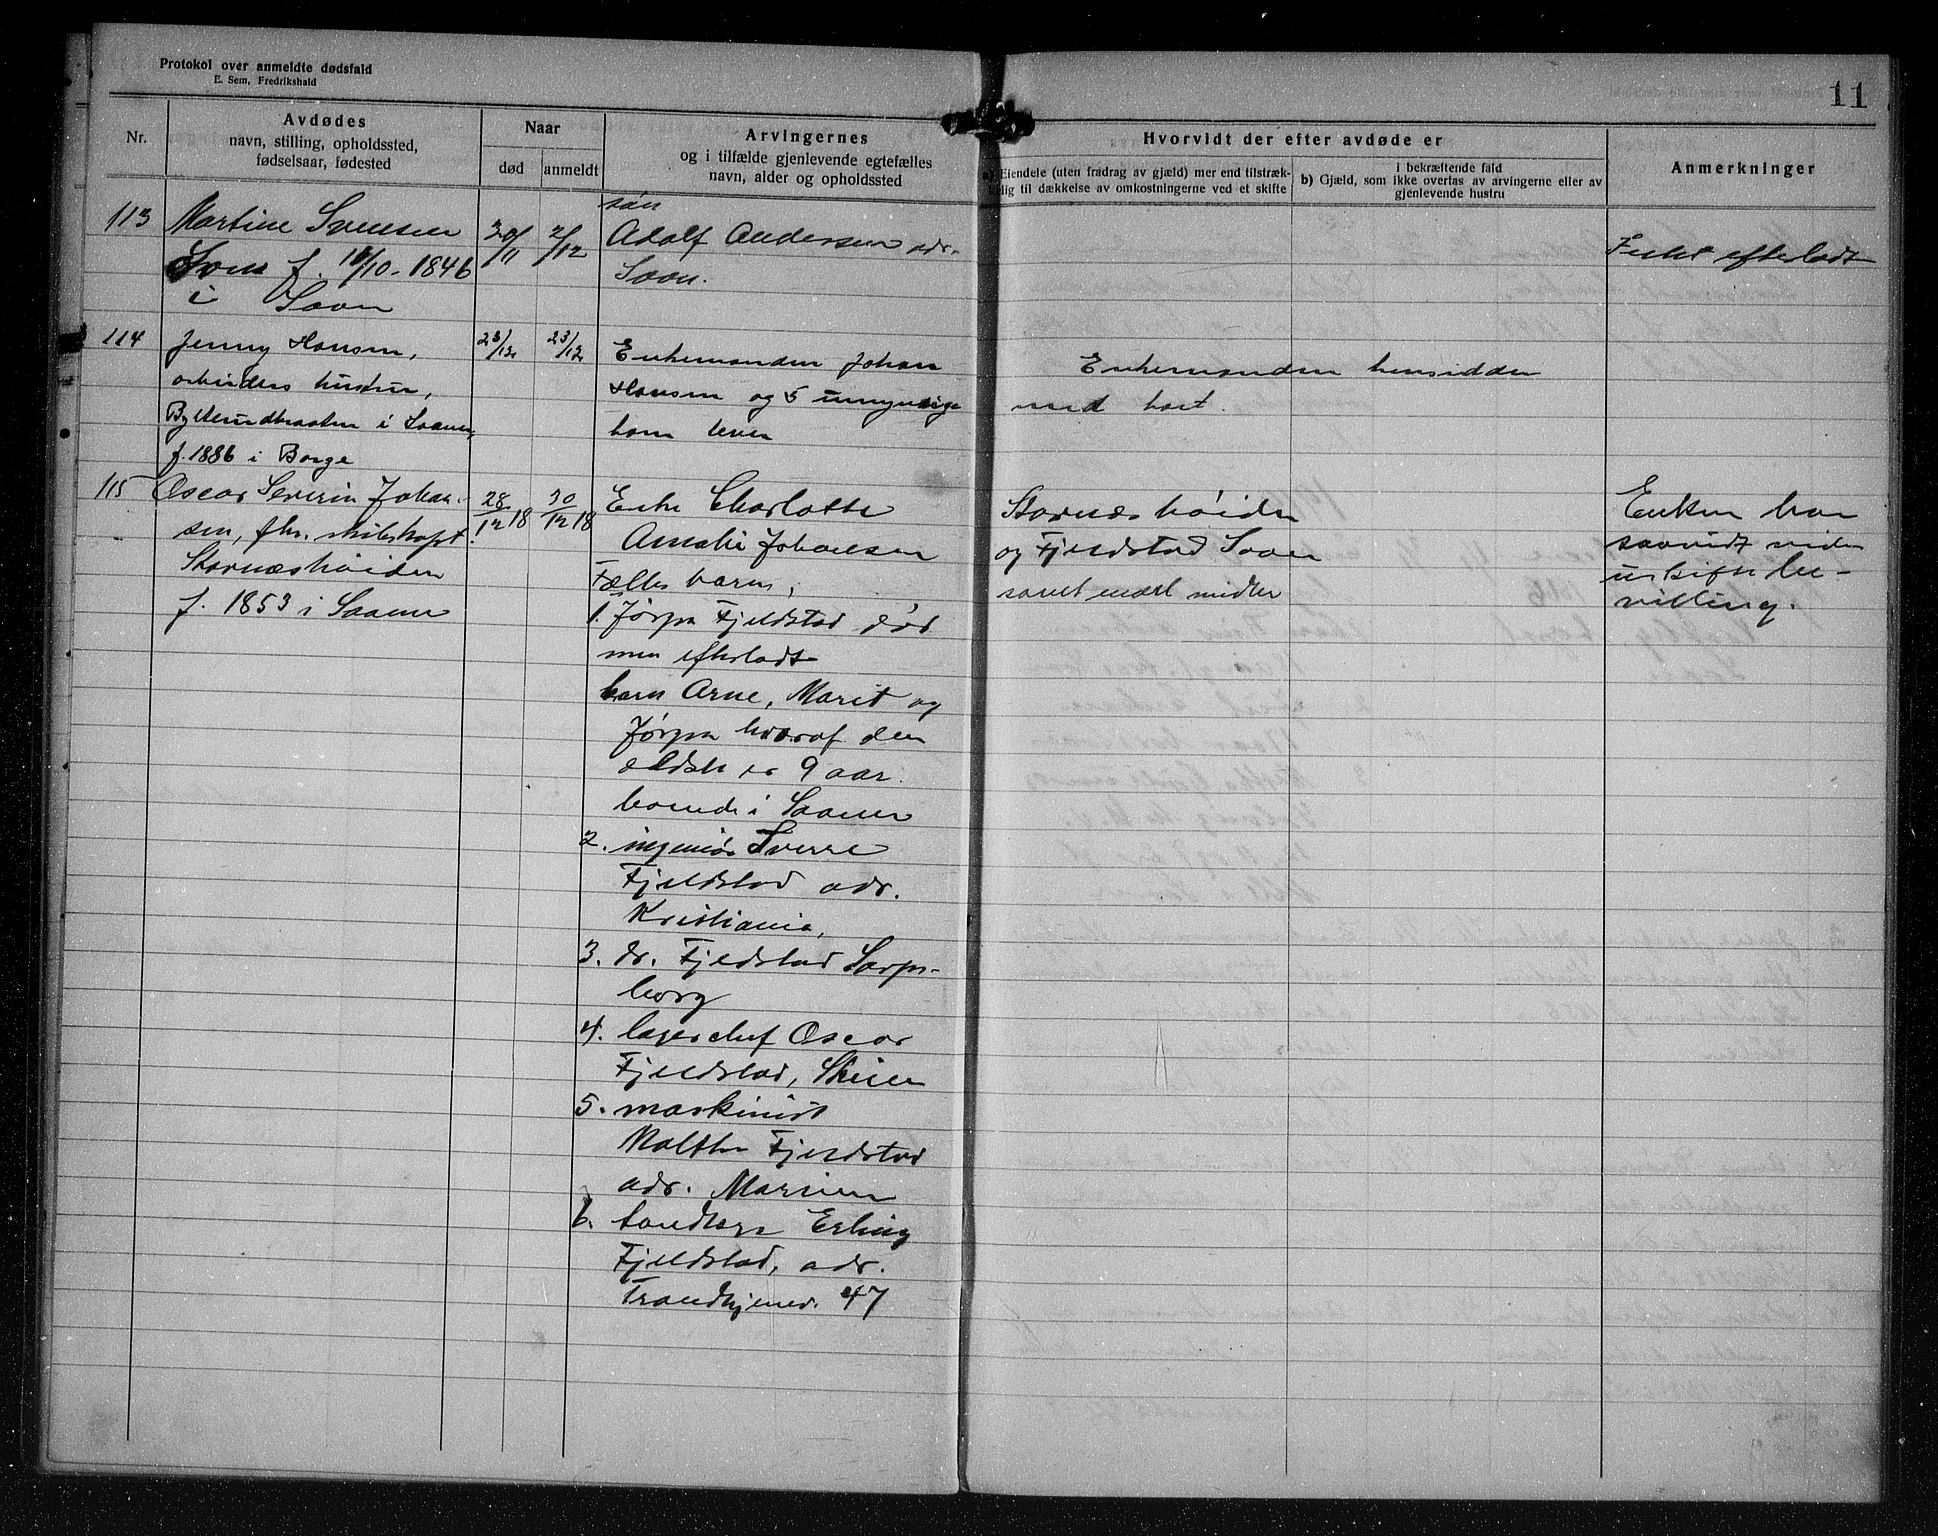 Protokol over anmeldte dødsfald
E. Sem, Fredrikshald
11
Nr.
Avdødes
navn, stilling, opholdssted,
fødselsaar, fødested
Naar
død
anmeldt
Arvingernes
og i tilfælde gjenlevende egtefælles
navn, alder og opholdssted
Hvorvidt der efter avdøde er
a) Eiendele (uten fradrag av gjæld) mer end tilstræk-
kelig til dækkelse av omkostningerne ved et skifte
i bekræftende fald
b) Gjæld, som ikke overtas av arvingerne eller av
gjenlevende hustru
Anmerkninger
113
Martine Svensen
f. 18/10-1846
i Soon
30/11
2/12
søn
Adolf Andersen adr.
Soon.
Intet efterladt
114
Jenny Hansen,
arbeiders hustru,
i Saaner,
f. 1886 i Borge
23/12
23/12
Enkemanden Johan
Hansen og 5 umyndige
barn lever
Enkemanden hensidder
med boet.
115
Oscar Severin Johan-
sen, fhv. skibskapt.
Stornæshøiden
f. 1853 i Saaner
28/12 18
30/12 18
Enke Charlotte
Amalie Johansen
Fælles barn,
1. Jørgen Fjeldstad død
men efterladt
barn Arne, Marit og
Jørgen hvoraf den
eldste er 9 aar.
boende i Saaner
2. ingeniør Sverre
Fjeldstad adr.
Kristiania,
3. dr. Fjeldstad Sarps-
borg
4. lagerchef Oscar
Fjeldstad, Skien
5. maskinist
Malthe Fjeldstad
adr. Marinen
6. tandlæge Erling
Fjeldstad, adr.
Trondhjemsv. 47
Stornæshøiden
og Fjeldstad Soon
samt endel midler
Enken har
saavidt vides
uskiftebe-
villing.